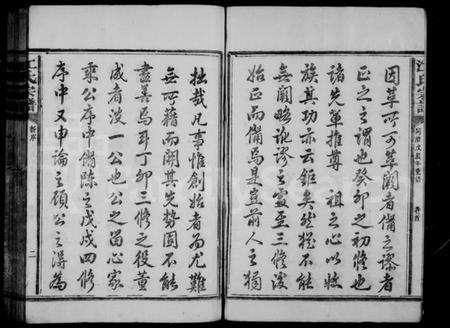 因革所可革闕者備之謬者
正之之謂也癸卯之初修也
諸先輩推尊 祖之心以收
族其功亦云鉅矣然猶不能
無闕略訛謬之處至三修後
始正焉而備焉是豈前人之獨
拙哉凡事惟創始者為尤難
無可藉而開其先勢固不能
盡善焉耳丁卯三修之役董
成者沒一公也公之留心家
乘公序中備陳之戊戌四修
序中又申論之顧公之得為
江氏宗譜
新序
二